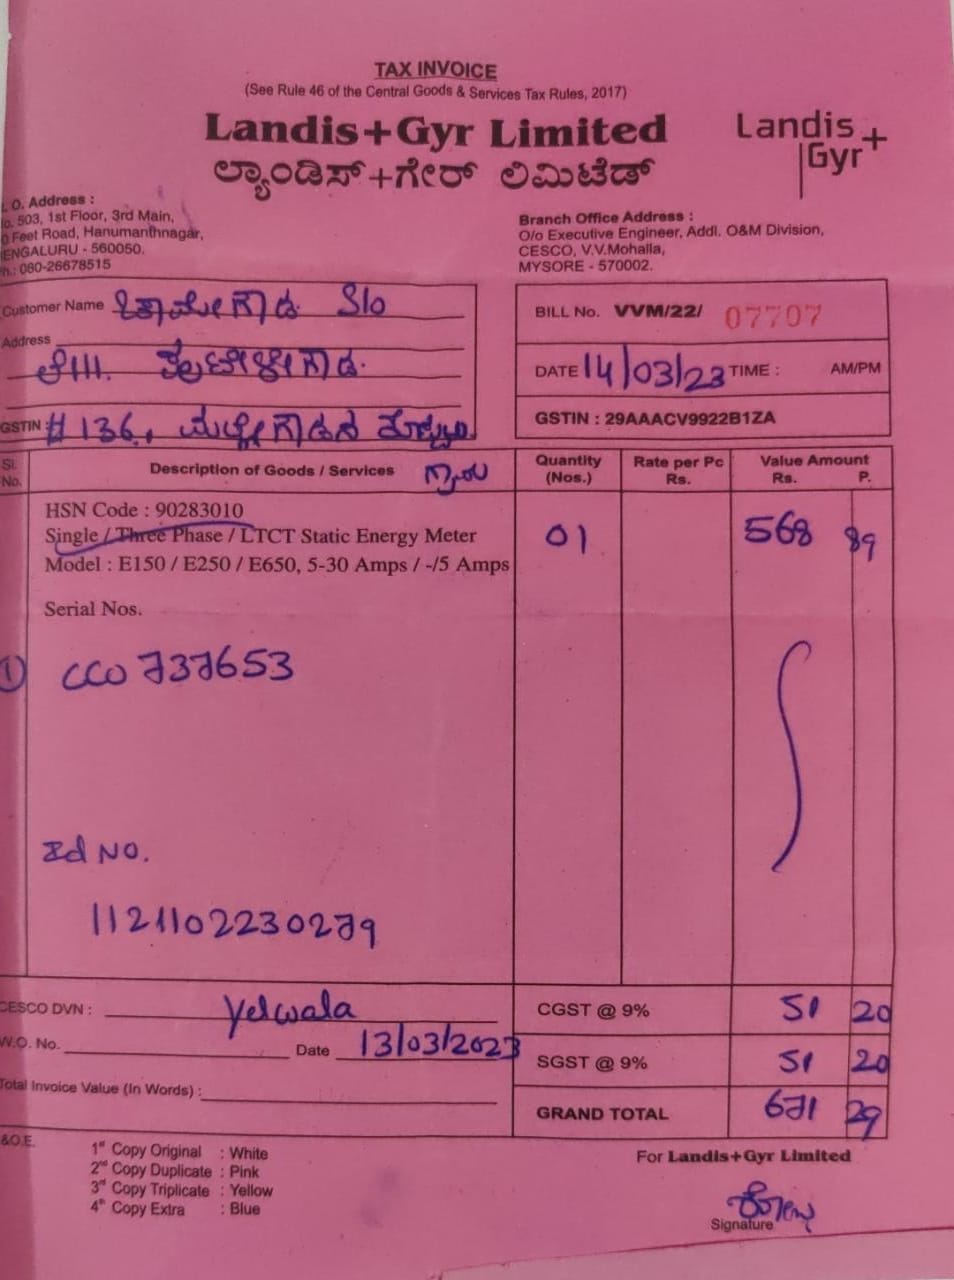 TAX INVOICE
(See Rule 46 of the Central Goods & Services Tax Rules, 2017)
Landis+Gyr Limited
ಲ್ಯಾಂಡಿಸ್+ಗೇರ್ ಲಿಮಿಟೆಡ್
Landis
Gyr+
O. Address :
503, 1st Floor, 3rd Main,
Feet Road, Hanumanthnagar,
ENGALURU - 560050.
h.: 080-26678515
Branch Office Address :
O/o Executive Engineer, Addl. O&M Division,
CESCO, V.V.Mohalla,
MYSORE - 570002.
Customer Name S/o
Address
GSTIN : # 136,
BILL No. VVM/22/ 07707
DATE 14/03/23 TIME : AM/PM
GSTIN : 29AAACV9922B1ZA
Sl. No. Description of Goods / Services Quantity (Nos.) Rate per Pc Rs. Value Amount Rs. P.
HSN Code : 90283010
Single / Three Phase / LTCT Static Energy Meter 01 568 89
Model : E150 / E250 / E650, 5-30 Amps / -/5 Amps
Serial Nos.
1 CCO 737653
Id No.
1121102230279
CESCO DVN : Yelwala
W.O. No. Date 13/03/2023
Total Invoice Value (In Words) :
CGST @ 9% 51 20
SGST @ 9% 51 20
GRAND TOTAL 671 29
&O.E.
1st Copy Original : White
2nd Copy Duplicate : Pink
3rd Copy Triplicate : Yellow
4th Copy Extra : Blue
For Landis+Gyr Limited
Signature